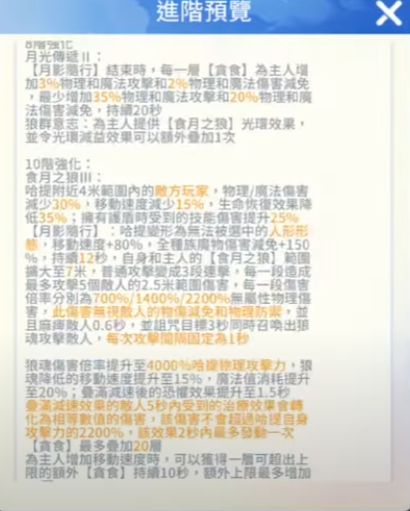 進階預覽
8階強化
月光傳遞Ⅱ：
【月影隨行】結束時，每一層【貪食】為主人增
加3%物理和魔法攻擊和2%物理和魔法傷害減免
，最少增加35%物理和魔法攻擊和20%物理和魔
法傷害減免，持續20秒
狼群意志：為主人提供【食月之狼】光環效果，
並令光環減益效果可以額外疊加1次
10階強化：
食月之狼Ⅲ：
哈提附近4米範圍內的敵方玩家，物理/魔法傷害
減少30%，移動速度減少15%，生命恢復效果降
低35%；擁有護盾時受到的技能傷害提升25%
【月影隨行】：哈提變形為無法被選中的人形形
態，移動速度+80%，全種族魔物傷害減免+150
%，持續12秒，自身和主人的【食月之狼】範圍
擴大至7米，普通攻擊變成3段連擊，每一段造成
最多攻擊5個敵人的2.5米範圍傷害，每一段傷害
倍率分別為700%/1400%/2200%無屬性物理傷
害，此傷害無視敵人的物傷減免和物理防禦，並
且麻痺敵人0.6秒，並詛咒目標3秒同時召喚出狼
魂攻擊敵人，每次攻擊間隔固定為1秒
狼魂傷害倍率提升至4000%哈提物理攻擊力，狼
魂降低的移動速度提升至15%，魔法值消耗提升
至20%；疊滿減速後的恐懼效果提升至1.5秒
疊滿減速效果的敵人5秒內受到的治療效果會轉
化為相等數值的傷害，該傷害不會超過哈提自身
攻擊力的2200%，該效果2秒內最多發動一次
【貪食】最多疊加20層
為主人增加移動速度時，可以獲得一層可超出上
限的額外【貪食】持續10秒，額外上限最多增加